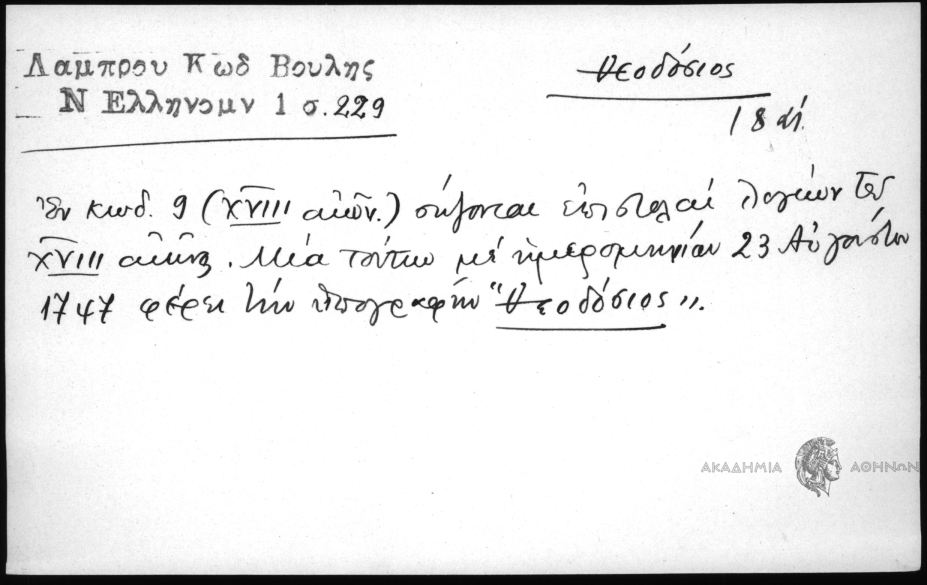 Λαμπρου Κωδ Βουλης
Ν Ελληνομν 1 σ. 229
Θεοδόσιος
18 αἰ.
Ἐν κωδ. 9 (XVIII αἰῶν.) σῴζονται ἐπιστολαὶ λογίων τοῦ
XVIII αἰῶνος. Μία τούτων μὲ ἡμερομηνίαν 23 Αὐγούστου
1747 φέρει τὴν ὑπογραφὴν "Θεοδόσιος".
ΑΚΑΔΗΜΙΑ ΑΘΗΝΩΝ